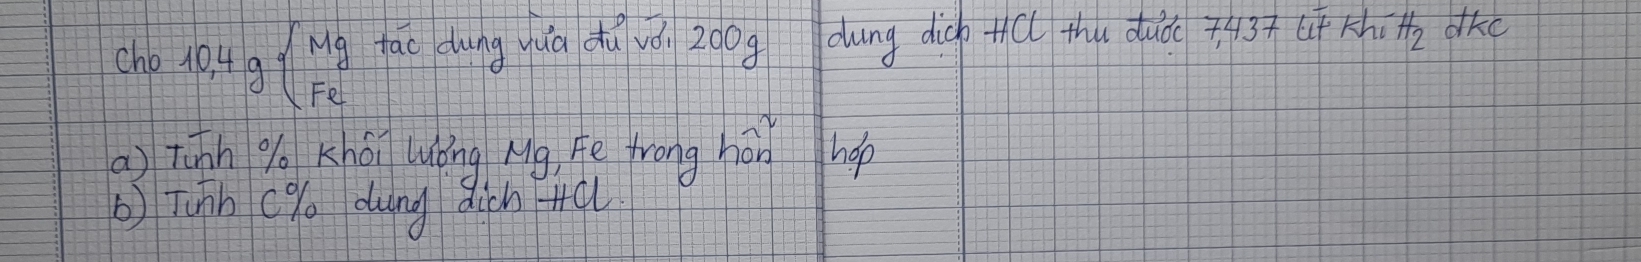 Cho 10,4 g { Mg tác dụng vừa đủ với 200g dung dịch HCl thu được 7,437 lít khí H₂ đkc
Fe
a) Tính % khối lượng Mg, Fe trong hỗn hợp
b) Tính C% dung dịch HCl.